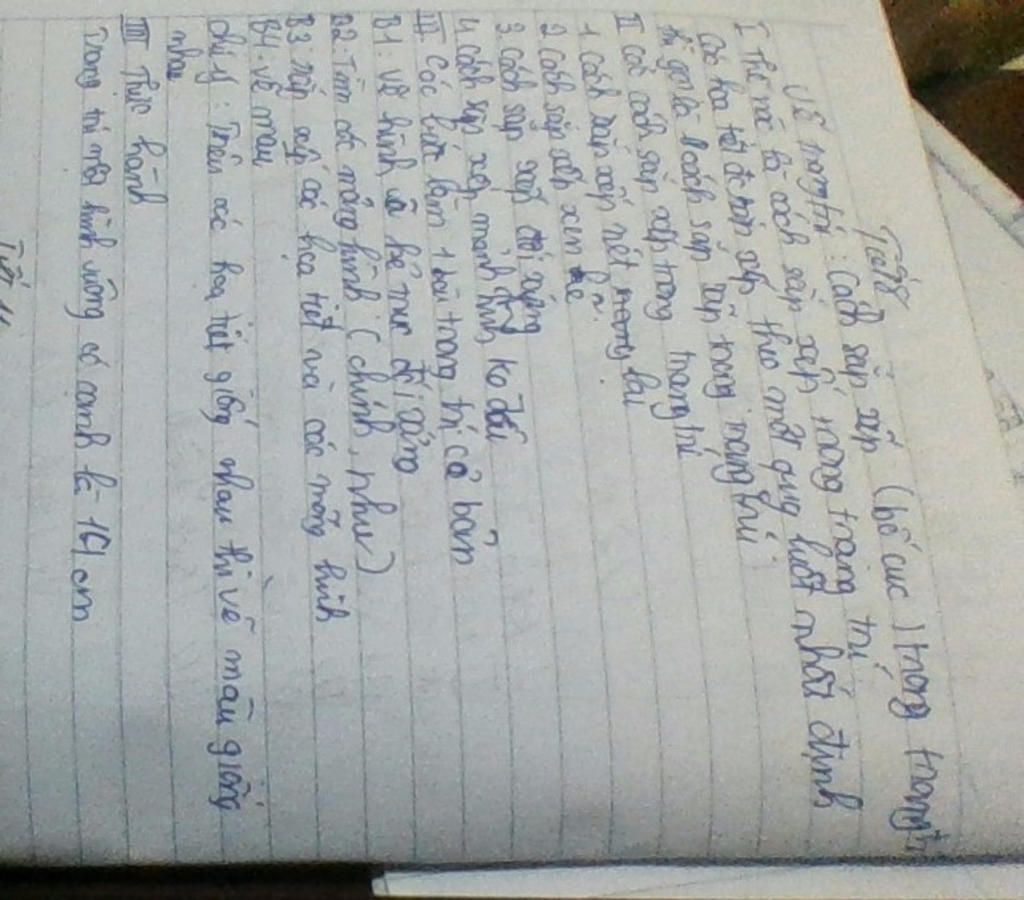 Tiết 8
Vẽ trang trí: Cách sắp xếp (bố cục) trong trang trí
I Thế nào là cách sắp xếp trong trang trí
Các hoạ tiết đc sắp xếp theo một quy luật nhất định
thì gọi là cách sắp xếp trong trang trí
II Các cách sắp xếp trong trang trí
1 Cách sắp xếp nhắc lại
2 Cách sắp xếp xen kẽ
3 Cách sắp xếp đối xứng
4 Cách sắp xếp mảnh hình ko đều
III Các bước làm 1 bài trang trí cơ bản
B1: Vẽ hình và kẻ trục đối xứng
B2: Tìm các mảng hình (chính, phụ)
B3: sắp xếp các họa tiết và các mảng hình
B4: Vẽ màu
Chú ý: Trên các hoạ tiết giống nhau thì vẽ màu giống
nhau
III Thực hành
Trang trí một hình vuông có cạnh là 16 cm
Tiết